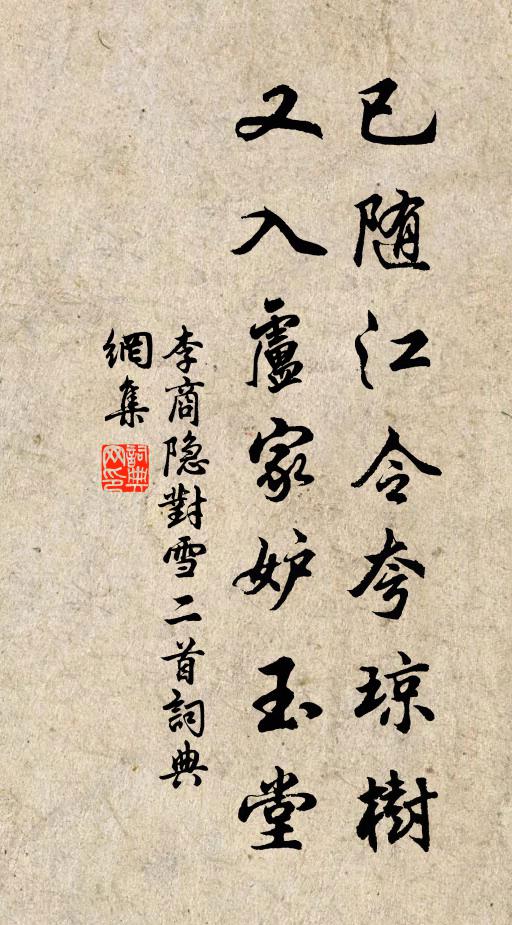 已随江令夸琼樹
又入盧家妒玉堂
李商隐對雪二首詞典
網集
詞典
网印